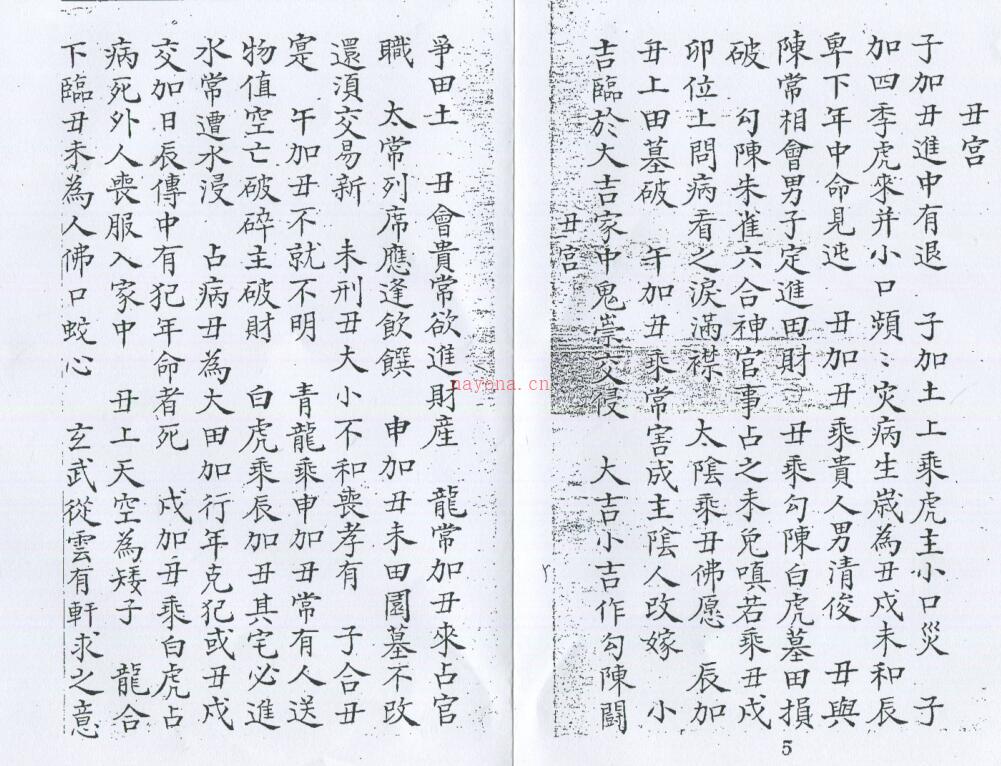 丑宫
子加丑進中有退　子加土上乘虎主小口災　子
加四季虎來并小口頻〻灾病生歳為丑戌未和辰
卑下年中命見迍　丑加丑乘貴人男清俊　丑與
陳常相會男子定進田財　丑乘勾陳白虎墓田損
破　勾陳朱雀六合神官事占之未免嗔若乘丑戌
卯位上問病看之淚滿襟　太陰乘丑佛愿　辰加
丑上田墓破　午加丑乘常害成主陰人改嫁　小
吉臨於大吉家中鬼祟交侵　大吉小吉作勾陳鬪
丑宫
爭田土　丑會貴常欲進財産　龍常加丑來占官
職　太常列席應逢飲饌　申加丑未田園墓不改
還須交易新　未刑丑大小不和喪孝有　子合丑
寔　午加丑不就不明　青龍乘申加丑常有人送
物值空亡破碎主破財　白虎乘辰加丑其宅必進
水常遭水浸　占病丑為大田加行年克犯或丑戌
交加日辰傳中有犯年命者死　戌加丑乘白虎占
病死外人喪服入家中　丑上天空為矮子　龍合
下臨丑未為人佛口蛇心　玄武從雲有軒求之意
5
nayona.cn